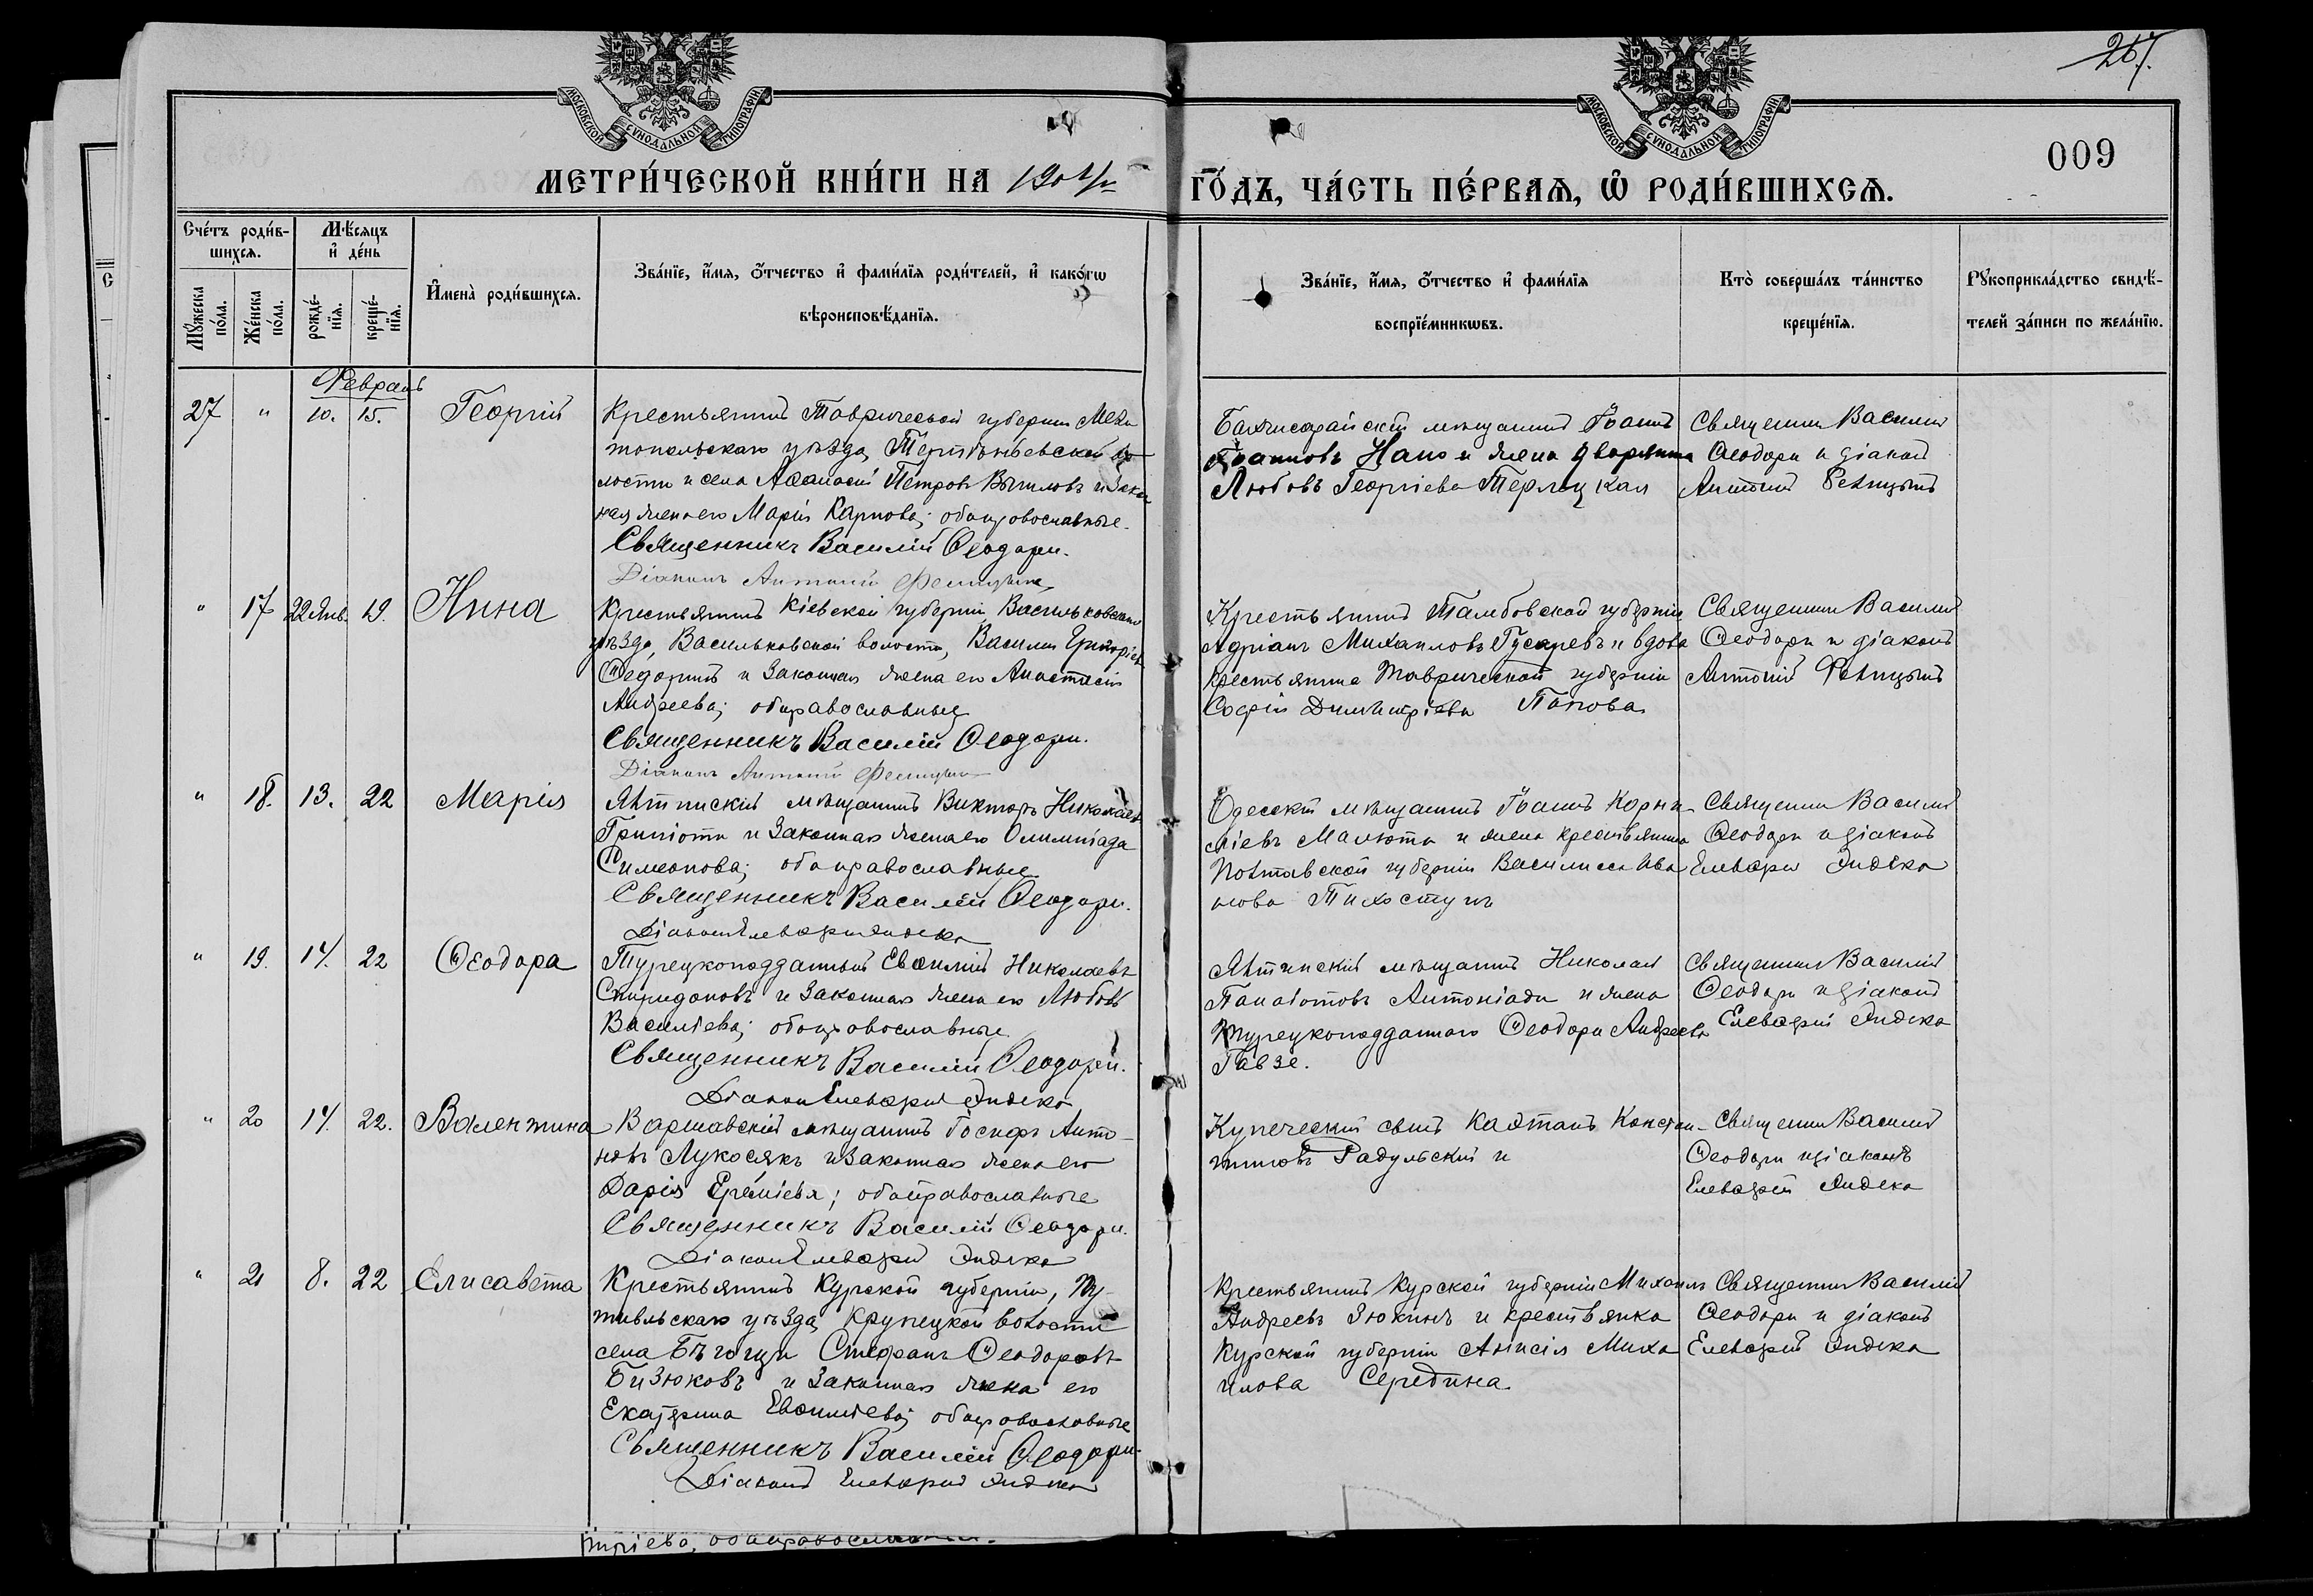 267.
009
МОСКОВСКОЙ СУНОДАЛЬНОЙ ТИПОГРАФІИ
МОСКОВСКОЙ СУНОДАЛЬНОЙ ТИПОГРАФІИ
МЕТРИ́ЧЕСКОЙ КНИ́ГИ НА 1904 ГО́ДЪ, ЧА́СТЬ ПЕ́РВАѦ, Ѡ҆ РОДИ́ВШИХСѦ.
Сче́тъ роди́в-
шихсѧ.
Мꙋ́жеска по́ла.
Же́нска по́ла.
Мѣ́сѧцъ
и҆ де́нь
рожде́-
нїѧ.
креще́-
нїѧ.
И҆мена̀ роди́вшихсѧ.
Зва́нїе, и҆́мѧ, ѻ҆́тчество и҆ фами́лїѧ роди́телей, и҆ како́гѡ
вѣроисповѣ́данїѧ.
Зва́нїе, и҆́мѧ, ѻ҆́тчество и҆ фами́лїѧ
воспрїе́мникѡвъ.
Кто̀ соверша́лъ та́инство
креще́нїѧ.
Рꙋкоприкла́дство свидѣ́-
телей за́писи по жела́нїю.
Февраль
27 " 10. 15. Георгій
Крестьянинъ Таврической губерніи Мели
топольскаго уѣзда, во
лости и села Аѳанасій Петровъ и закон
ная жена его Марія Карпова; оба православные.
Священникъ Василій Ѳеодори.
Діаконъ Антоній Феницынъ
Бахчисарайскій мѣщанинъ Іоаннъ
Іоанновъ Нано и жена дворянина
Любовь Георгіева Терлецкая
Священникъ Василій
Ѳеодори и діаконъ
Антоній Феницынъ
" 17 22 Янв. 19. Нина
Крестьянинъ Кіевской губерніи Васильковскаго
уѣзда, Васильковской волости, Василій Григоріевъ
Ѳедоринъ и законная жена его Анастасія
Андреева; оба православные
Священникъ Василій Ѳеодори.
Діаконъ Антоній Феницынъ
Крестьянинъ Тамбовской губерніи
Адріанъ Михаиловъ Гусаревъ и вдова
крестьянина Таврической губерніи
Софія Димитріева Попова
Священникъ Василій
Ѳеодори и діаконъ
Антоній Феницынъ
" 18. 13. 22 Марія
Ялтинскій мѣщанинъ Викторъ Николаевъ
и законная жена его Олимпіада
Симеонова; оба православные
Священникъ Василій Ѳеодори.
Діаконъ Елевѳерій Эндека
Одесскій мѣщанинъ Іоаннъ Корни
ліевъ Малюта и жена крестьянина
Полтавской губерніи Василисса Ива
нова Тихоступъ
Священникъ Василій
Ѳеодори и діаконъ
Елевѳерій Эндека
" 19. 14. 22 Ѳеодора
Турецкоподданный Евѳимій Николаевъ
Спиридоновъ и законная жена его Любовь
Василіева; оба православные
Священникъ Василій Ѳеодори.
Діаконъ Елевѳерій Эндека
Ялтинскій мѣщанинъ Николай
Панаіотовъ Антоніади и жена
турецкоподданнаго Ѳеодора Андреева
Гавзе.
Священникъ Василій
Ѳеодори и діаконъ
Елевѳерій Эндека
" 20 14. 22. Валентина
Варшавскій мѣщанинъ Іосифъ Анто-
новъ Лукосякъ и законная жена его
Дарія Ереміева; оба православные
Священникъ Василій Ѳеодори.
Діаконъ Елевѳерій Эндека
Купеческій сынъ Каэтанъ Констан-
тиновъ Радульскій и
Священникъ Василій
Ѳеодори и діаконъ
Елевѳерій Эндека
" 21 8. 22 Елисавета
Крестьянинъ Курской губерніи, Пу-
тивльскаго уѣзда, Крупецкой волости
села Стефанъ Ѳеодоровъ
Бизюковъ и законная жена его
Екатерина Евѳиміева; оба православные
Священникъ Василій Ѳеодори.
Діаконъ Елевѳерій Эндека
Крестьянинъ Курской губерніи Михаилъ
Андреевъ Зюкинъ и крестьянка
Курской губерніи Анисія Миха
илова Середина.
Священникъ Василій
Ѳеодори и діаконъ
Елевѳерій Эндека